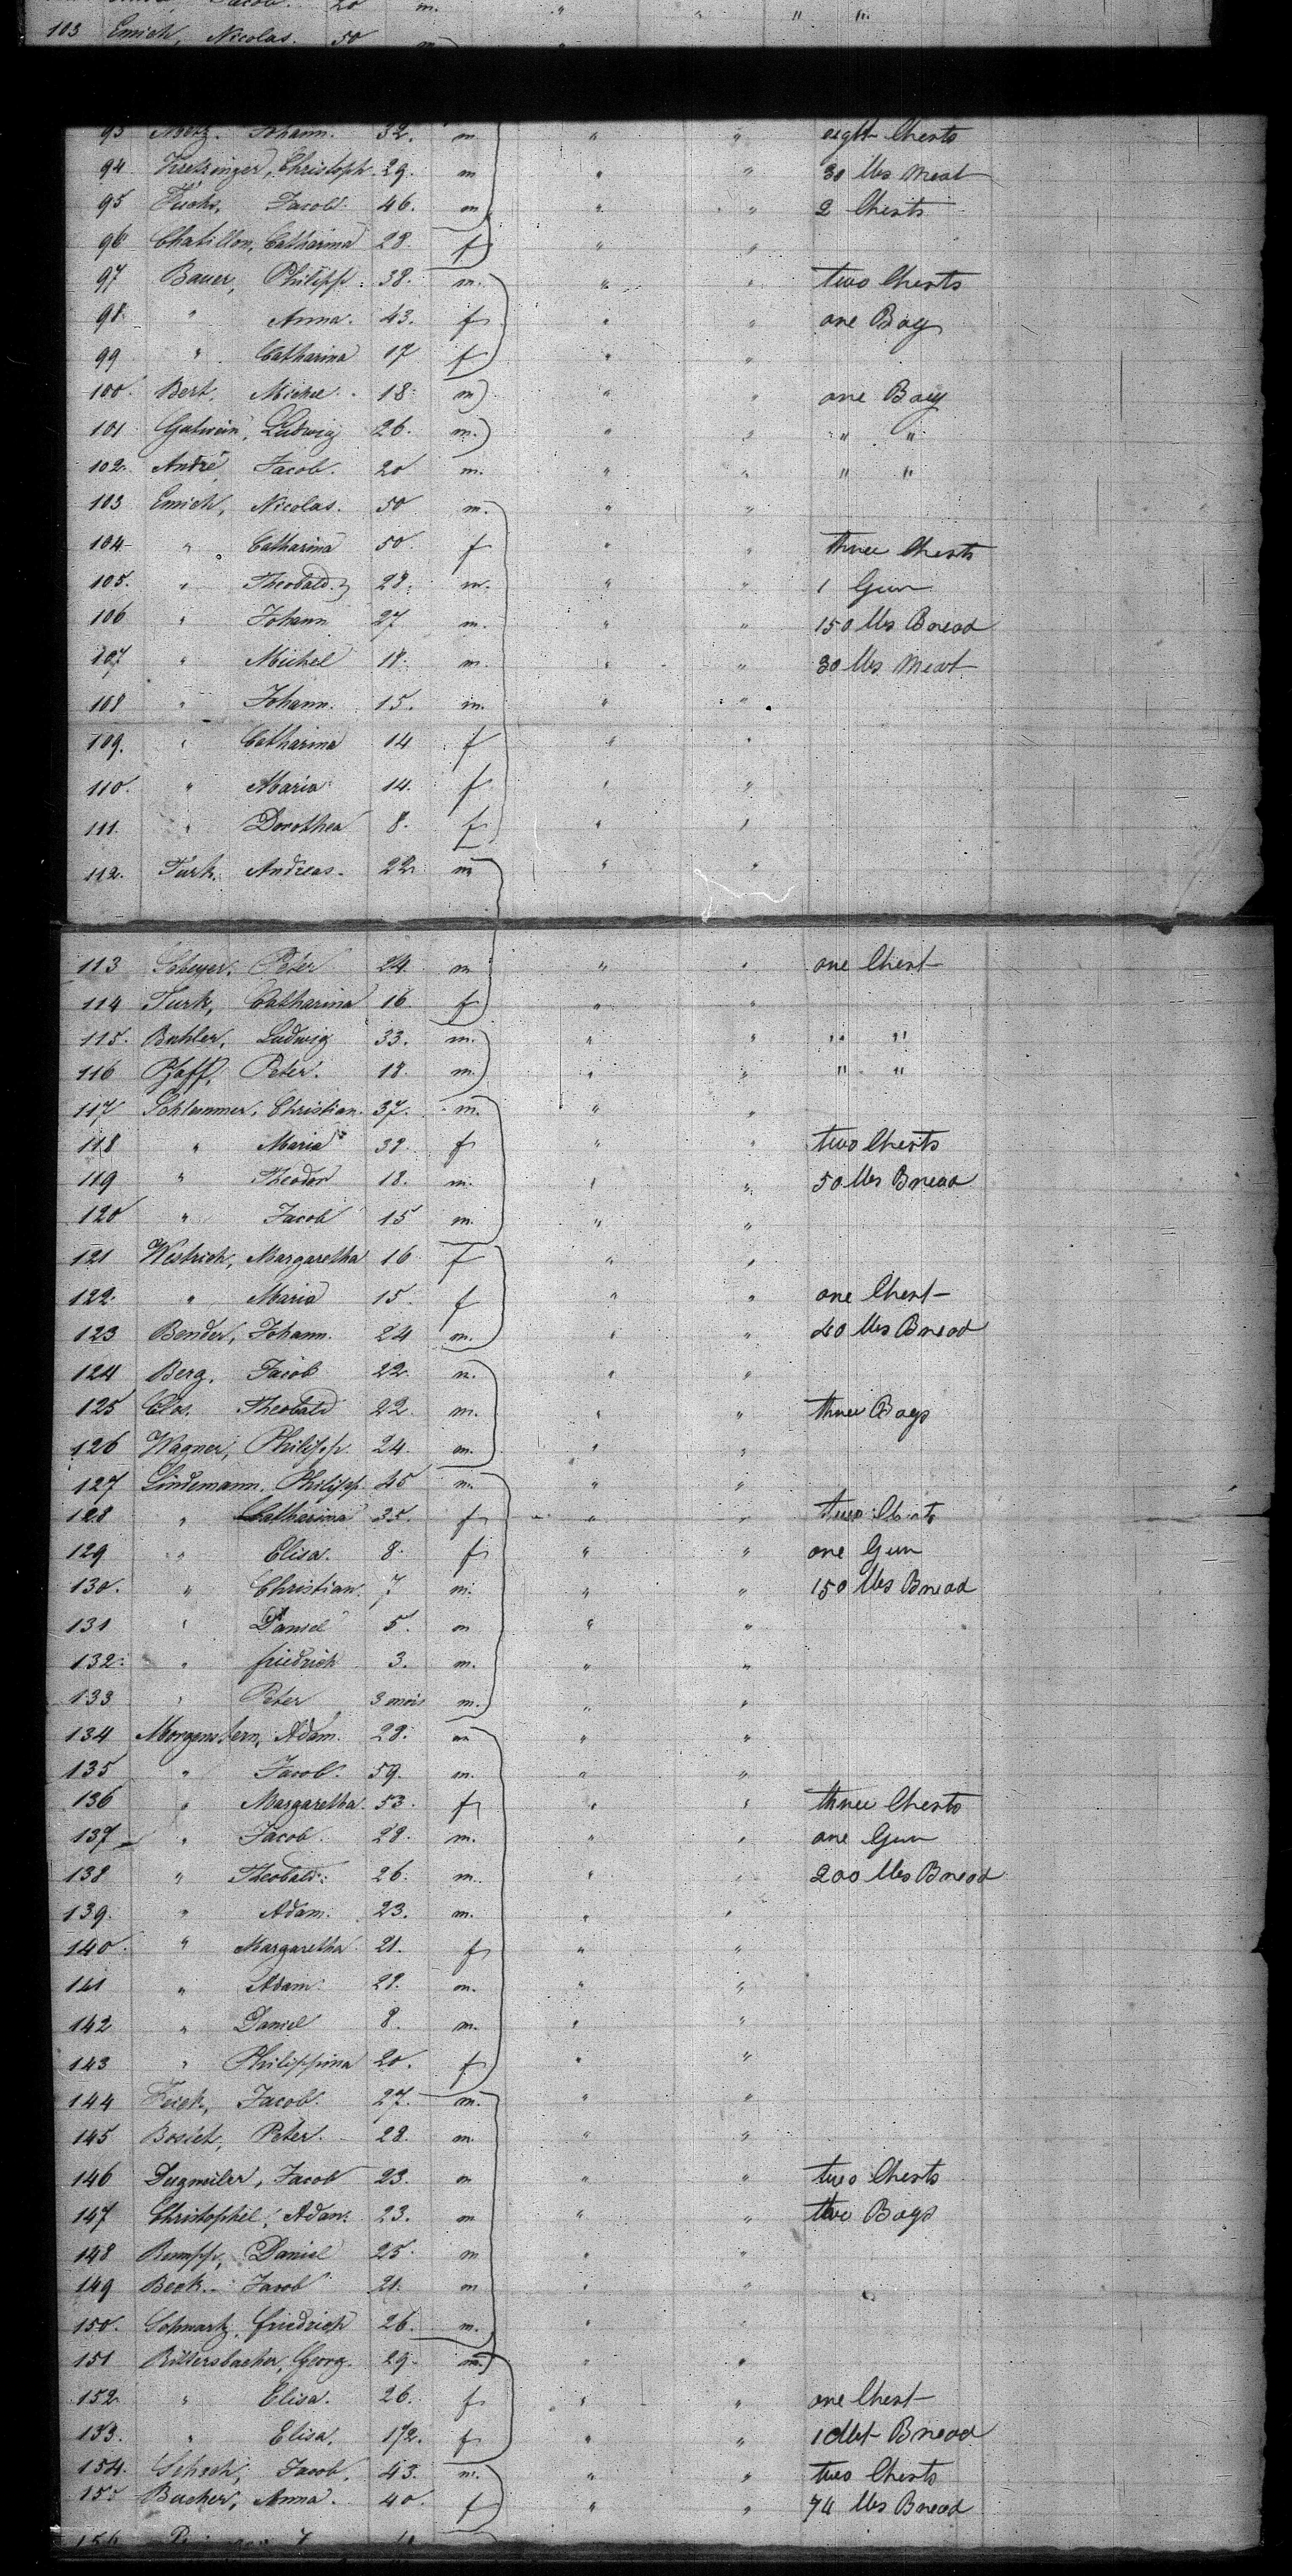 Jacob. 20 m. " " " "
103 Emich, Nicolas. 50 m
93 Metz. Johann. 32. m " " eight Chests
94 Kretzinger, Christoph. 29. m " " 30 lbs Meat
95 Fuchs, Jacob. 46. m " " 2 Chests
96 Chatillon, Catharina 28. f " "
97 Bauer, Philipp. 38. m. " " two Chests
98. " Anna. 43. f " " one Bag
99 " Catharina 17 f " "
100. Bert. Michel. 18. m " " one Bag
101 Gutwein, Ludwig 26. m. " " " "
102. André Jacob. 20 m. " " " "
103 Emich, Nicolas. 50 m. " "
104 " Catharina 50. f " " three Chests
105. " Theobald. 28. m. " " 1 Gun
106 " Johann 27 m. " " 150 lbs Bread
107 " Michel 18. m. " " 30 lbs Meat
108 " Johann. 15. m. " "
109. " Catharina 14 f " "
110. " Maria 14. f " "
111. " Dorothea 8. f " "
112. Turk. Andreas. 22 m " "
113 Peter 24. m " " one Chest
114 Turk, Catharina 16 f " "
115. Buhler, Ludwig 33. m. " " " "
116 Pfaff, Peter. 18. m. " " " "
117 Schlemmer, Christian. 37. m. " "
118 " Maria 39. f " " two Chests
119 " Theodor 18. m. " " 50 lbs Bread
120 " Jacob 15 m. " "
121 Westrich, Margaretha 16 f " "
122. " Maria 15. f " " one Chest
123 Bender, Johann. 24 m. " " 40 lbs Bread
124 Berg. Jacob 22. m. " "
125 Clos. Theobald 22. m. " " three Bags
126 Wagner, Philipp 24. m. " "
127 Lindemann, Philipp. 45 m. " "
128 " Catharina 35. f " " two Chests
129 " Elisa. 8. f " " one Gun
130. " Christian. 7 m. " " 150 lbs Bread
131 " Daniel 5. m " "
132. " friedrich 3. m. " "
133 " Peter 3 mois m. " "
134 Morgenstern, Adam. 28. m " "
135 " Jacob. 59. m. " "
136 " Margaretha. 53. f " " three Chests
137 " Jacob. 28. m. " " one Gun
138 " Theobald. 26. m. " " 200 lbs Bread
139. " Adam. 23. m. " "
140. " Margaretha 21. f " "
141 " Adam. 29. m. " "
142 " Daniel 8. m. " "
143 " Philippina 20. f " "
144 Jacob. 27. m. " "
145 Peter. 28. m. " "
146 Jacob 23. m " " two Chests
147 Christophel, Adam. 23. m " " two Bags
148 Rumpp, Daniel 25. m " "
149 Beck. Jacob 21. m " "
150. Schwartz, friedrich 26. m. " "
151 Rittersbacher, Georg. 29. m. " "
152 " Elisa. 26. f " " one Chest
153. " Elisa. 1/2. f " " Bread
154. Jacob. 43. m. " " two Chests
155 Bucher, Anna. 40. f " " 74 lbs Bread
156